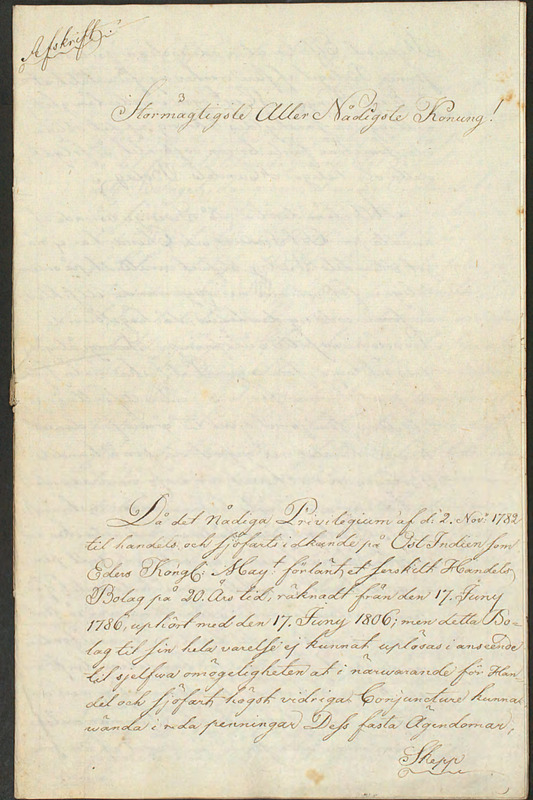 Afskrift.
Stormägtigste Aller Nådigste Konung!
Då det Nådiga Privilegium af d: 2. Nov: 1782
til handels och sjöfarts idkande på Ost-Indien som
Eders Kongl: May:t förlänt et serskilt Handels
Bolag på 20. Års tid, räknadt från den 17. Juny
1786, uphört med den 17. Juny 1806; men detta Bo-
lag til sin hela varelse ej kunnat uplösas i anseende
til sjelfwa omögeligheten at i närwarande för Han-
del och sjöfart högst vidriga Conjuncture kunna
wända i reda penningar Dess fasta Ägendomar,
Skepp